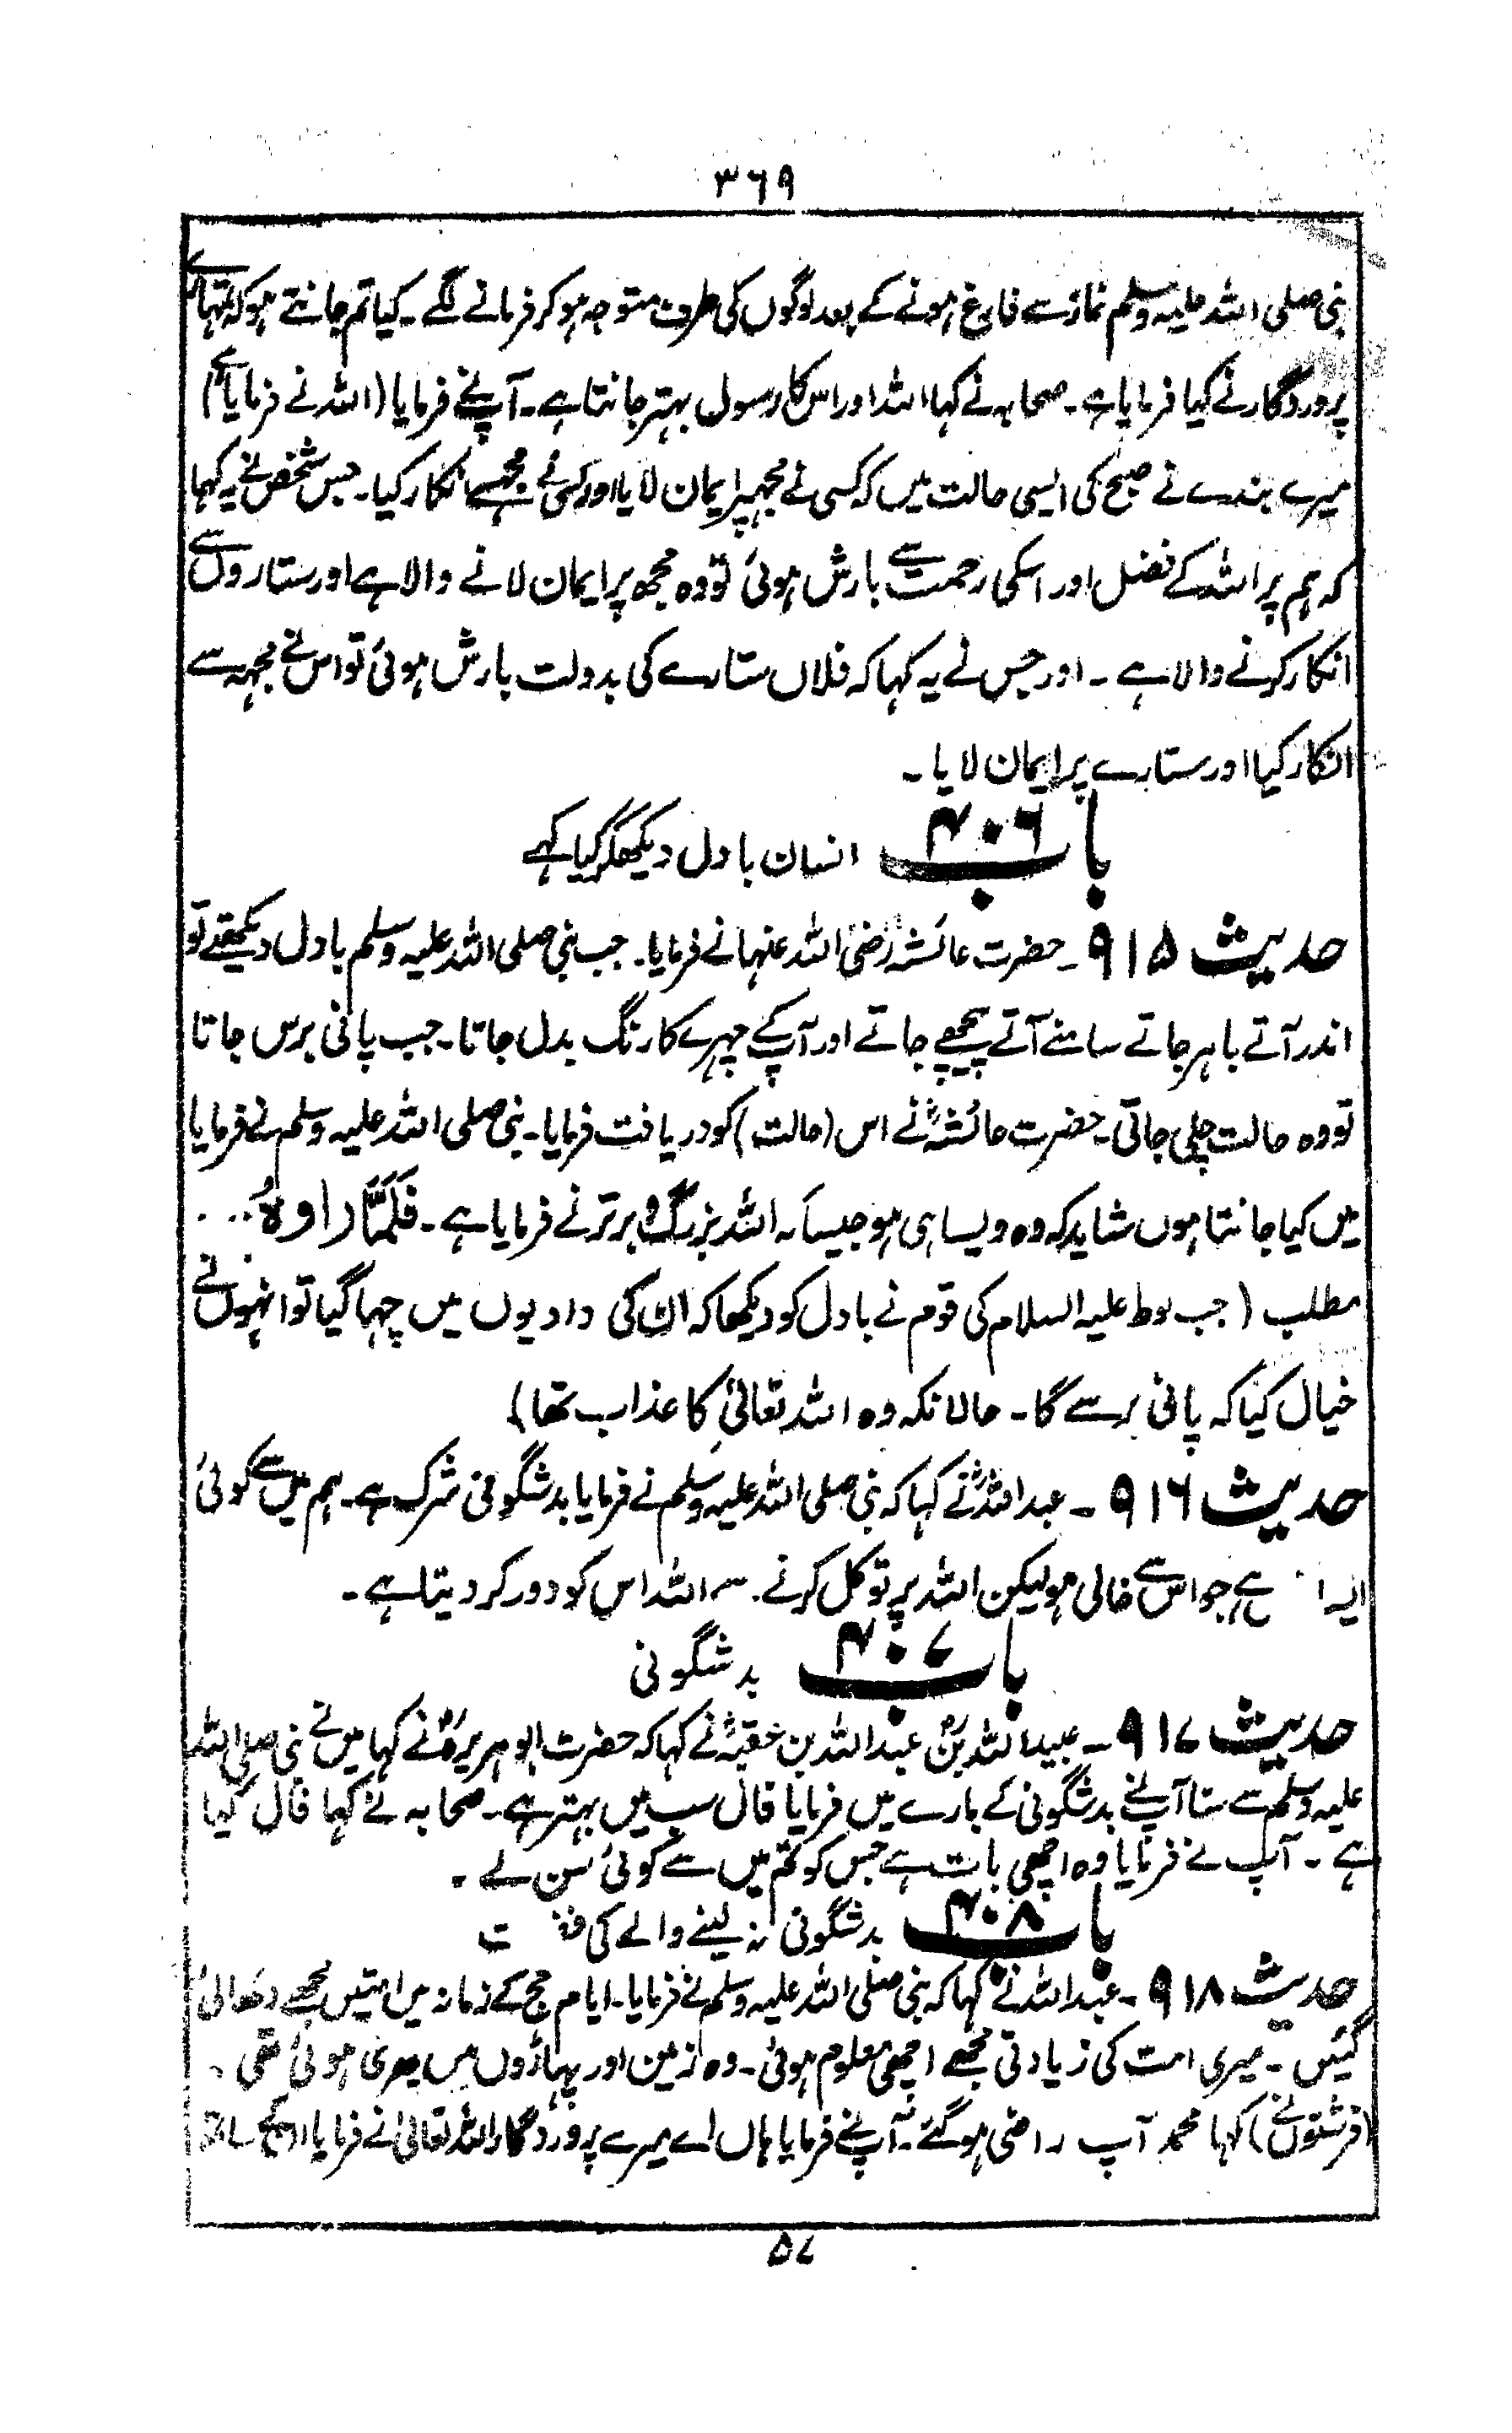 ۳۶۹
نبی صلی اللہ علیہ وسلم نماز سے فارغ ہونے کے بعد لوگوں کی طرف متوجہ ہو کر فرمانے لگے۔ کیا تم جانتے ہو کہ تمہارے
پروردگار نے کیا فرمایا ہے۔ صحابہ نے کہا اللہ اور اس کا رسول بہتر جانتا ہے۔ آپ نے فرمایا (اللہ نے فرمایا ہے)
میرے بندے نے صبح کی ایسی حالت میں کہ کسی نے مجہپر ایمان لایا اور کسی نے مجہسے انکار کیا۔ جس شخص نے یہ کہا
کہ ہم پر اللہ کے فضل اور اسکی رحمت سے بارش ہوئی تو وہ مجھ پر ایمان لانے والا ہے اور ستاروں سے
انکار کرنے والا ہے ۔ اور جس نے یہ کہا کہ فلاں ستارے کی بدولت بارش ہوئی تو اس نے مجہہ سے
انکار کیا اور ستارے پر ایمان لایا ۔
باب ۴۰۶ انسان بادل دیکھکر کیا کہے
حدیث ۹۱۵ ۔ حضرت عائشہ رضی اللہ عنہا نے فرمایا۔ جب نبی صلی اللہ علیہ وسلم بادل دیکھتے تو
اندر آتے باہر جاتے سامنے آتے پیچھے جاتے اور آپ کے چہرے کا رنگ بدل جاتا۔ جب پانی برس جاتا
تو وہ حالت چلی جاتی۔ حضرت عائشہؓ نے اس (حالت) کو دریافت فرمایا۔ نبی صلی اللہ علیہ وسلم نے فرمایا
میں کیا جانتا ہوں شاید کہ وہ ویسا ہی ہو جیسا کہ اللہ بزرگ و برتر نے فرمایا ہے۔ فَلَمَّا راوہُ ...
مطلب ( جب لوط علیہ السلام کی قوم نے بادل کو دیکھا کہ ان کی وادیوں میں چہا گیا تو انہوں نے
خیال کیا کہ پانی برسے گا۔ حالانکہ وہ اللہ تعالیٰ کا عذاب تھا)
حدیث ۹۱۶ ۔ عبداللہؓ نے کہا کہ نبی صلی اللہ علیہ وسلم نے فرمایا بدشگونی شرک ہے۔ ہم میں سے کوئی
ہے جو اس سے خالی ہو لیکن اللہ پر توکل کرنے سے اللہ اس کو دور کر دیتا ہے ۔
باب ۴۰۷ بدشگونی
حدیث ۹۱۷ ۔ عبیداللہ بن عبداللہ بن عقبہؓ نے کہا کہ حضرت ابو ہریرہؓ نے کہا میں نے نبی صلی اللہ
علیہ وسلم سے سنا آپ نے بدشگونی کے بارے میں فرمایا فال سب میں بہتر ہے۔ صحابہ نے کہا فال کیا
ہے ۔ آپ نے فرمایا وہ اچھی بات ہے جس کو تم میں سے کوئی سن لے ۔
باب ۴۰۸ بدشگونی نہ لینے والے کی
حدیث ۹۱۸ ۔ عبداللہ نے کہا کہ نبی صلی اللہ علیہ وسلم نے فرمایا۔ ایام حج کے زمانہ میں امتیں مجھے دکھائی
گئیں ۔ میری امت کی زیادتی مجھے اچھی معلوم ہوئی۔ وہ زمین اور پہاڑوں میں بھری ہوئی تھی ۔
(فرشتوں نے) کہا محمدؐ آپ راضی ہو گئے۔ آپ نے فرمایا ہاں اے میرے پروردگار اللہ تعالیٰ نے فرمایا ساتھ
۵۷